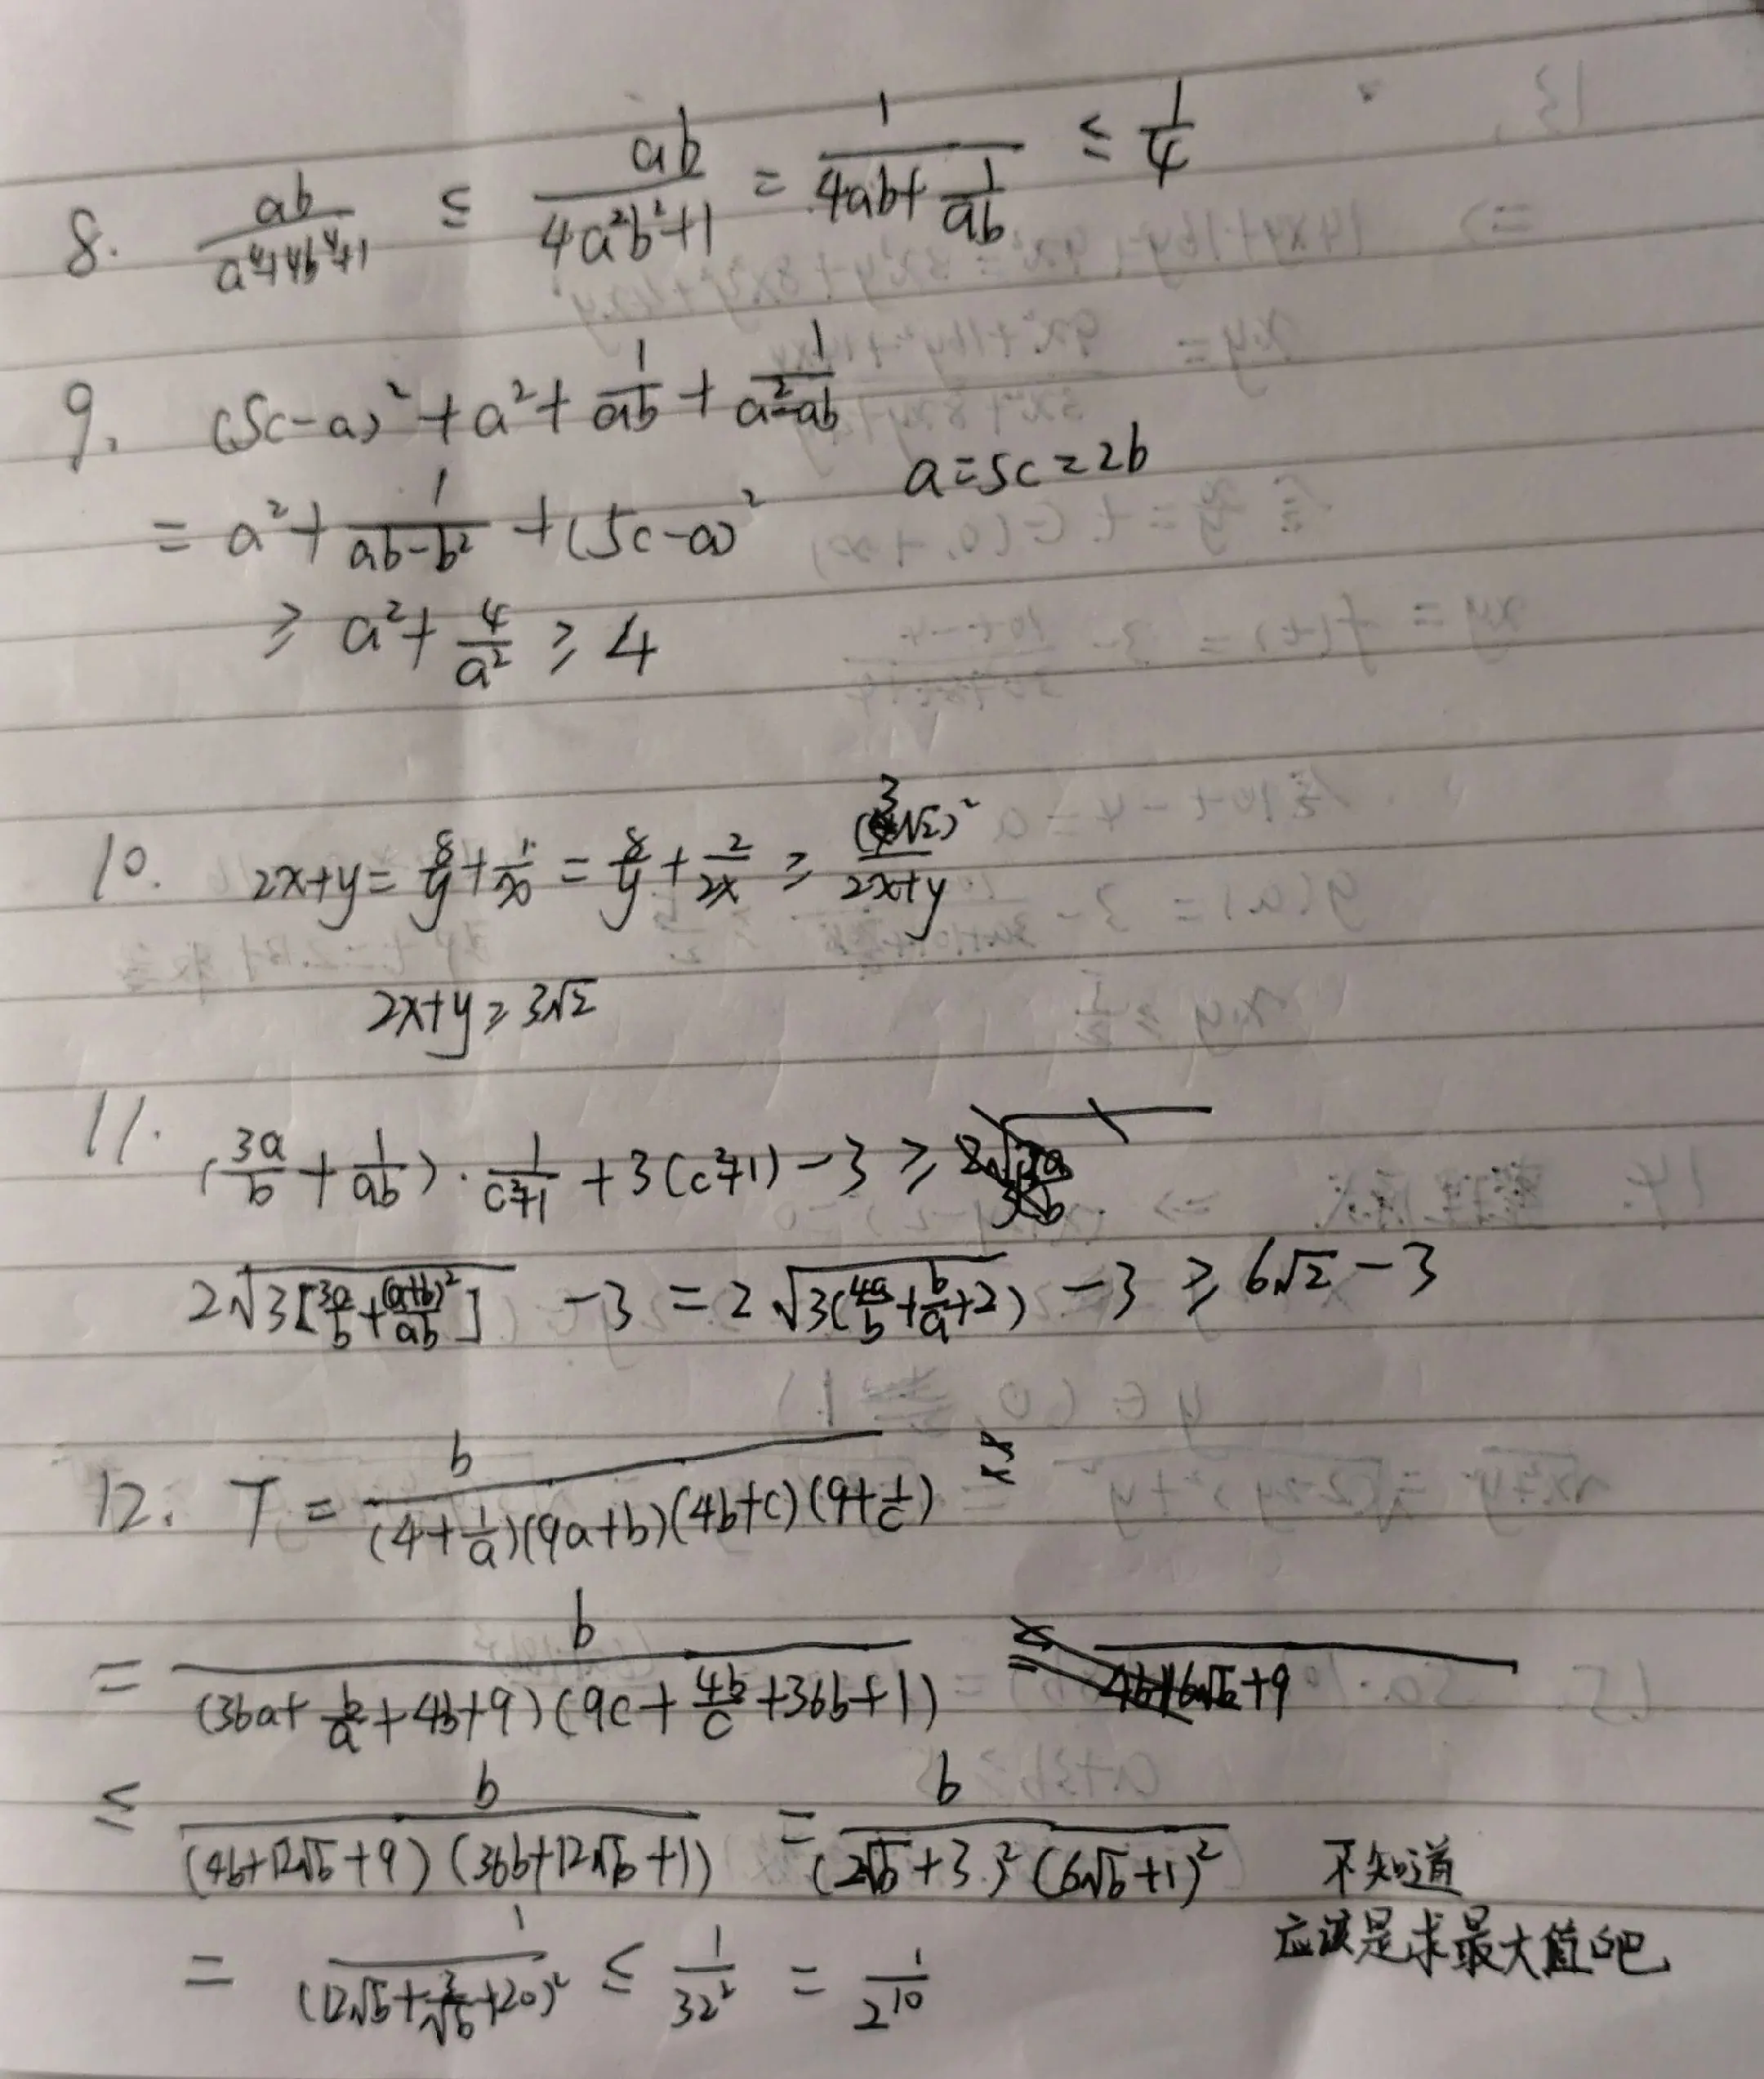 8. ab/(a⁴+4b⁴+1) ≤ ab/(4a²b²+1) = 1/(4ab+1/(ab)) ≤ 1/4
9. (5c-a)²+a²+1/(ab)+1/(a²-ab)
= a²+1/(ab-b²)+(5c-a)² a=5c=2b
≥ a²+4/a² ≥ 4
10. 2x+y=8/y+1/x=8/y+2/(2x) ≥ (3√2)²/(2x+y)
2x+y≥3√2
11. (3a/b+1/(ab))·1/(c²+1)+3(c²+1)-3 ≥
2√(3[3a/b+(a+b)²/(ab)])-3 = 2√(3(4a/b+b/a+2))-3 ≥ 6√2-3
12. T = b/((4+1/a)(9a+b)(4b+c)(9+1/c))
= b/((36a+b/a+4b+9)(9c+4b/c+36b+1))
≤ b/((4b+12√b+9)(36b+12√b+1)) = b/((2√b+3)²(6√b+1)²) 不知道
应该是求最大值吧
= 1/(12√b+3/√b+20)² ≤ 1/32² = 1/2¹⁰